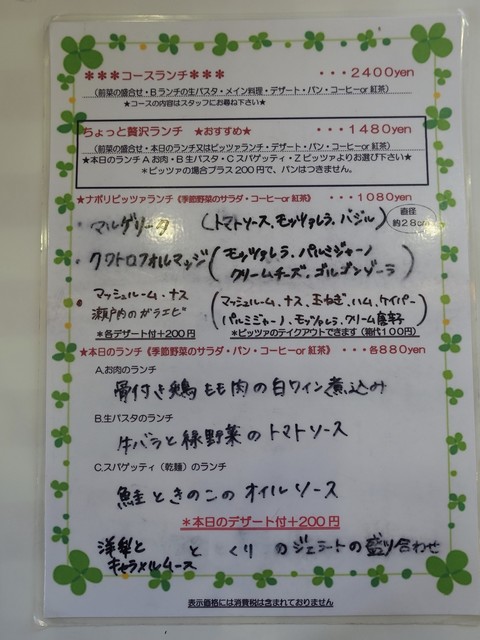 ＊＊＊コースランチ＊＊＊ ・・・2400yen
（前菜の盛合せ・B.ランチの生パスタ・メイン料理・デザート・パン・コーヒーor紅茶）
★コースの内容はスタッフにお尋ね下さい★
ちょっと贅沢ランチ ★おすすめ★ ・・・1480yen
（前菜の盛合せ・本日のランチ又はピッツァランチ・デザート・パン・コーヒーor紅茶）
★本日のランチ A お肉・B 生パスタ・C スパゲッティ・Z ピッツァよりお選び下さい★
＊ピッツァの場合プラス200円で、パンはつきません。
★ナポリピッツァランチ《季節野菜のサラダ・コーヒーor紅茶》 ・・・1080yen
・マルゲリータ （トマトソース、モッツァレラ、バジル） 直径約28
・クワトロフォルマッジ（モッツァレラ、パルミジャーノ
クリームチーズ、ゴルゴンゾーラ）
・マッシュルーム・ナス （マッシュルーム、ナス、玉ねぎ、ハム、ケイパー
瀬戸内のガラエビ パルミジャーノ、モッツァレラ、クリーム唐辛子）
＊各デザート付＋200円 ＊ピッツァのテイクアウトできます（箱代100円）
★本日のランチ《季節野菜のサラダ・パン・コーヒーor紅茶》 ・・・各880yen
A.お肉のランチ
骨付き鶏もも肉の白ワイン煮込み
B.生パスタのランチ
牛バラと緑野菜のトマトソース
C.スパゲッティ（乾麺）のランチ
鮭ときのこのオイルソース
＊本日のデザート付＋200円
洋梨と と くり のジェラートの盛り合わせ
キャラメルムース
表示価格には消費税は含まれておりません